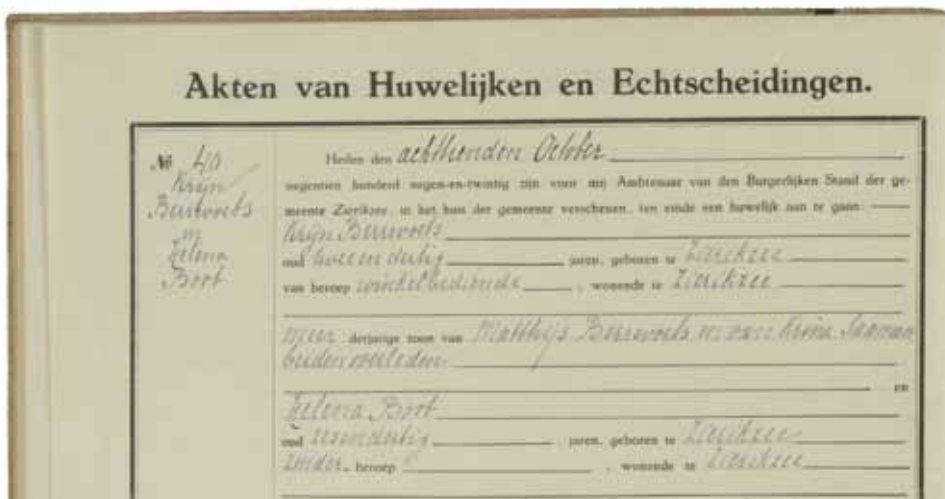 Akten van Huwelijken en Echtscheidingen.
№ 40
Krijn
en
Helena
Boot
Heden den achttienden October
negentien honderd negen-en-twintig zijn voor mij Ambtenaar van den Burgerlijken Stand der ge-
meente Zierikzee, in het huis der gemeente verschenen, ten einde een huwelijk aan te gaan:
Krijn
oud twee en dertig jaren, geboren te Zierikzee
van beroep winkelbediende, wonende te Zierikzee
meer derjarige zoon van Matthijs en van Krina
beiden overleden
en
Helena Boot
oud zesendertig jaren, geboren te Zierikzee
zonder beroep, wonende te Zierikzee